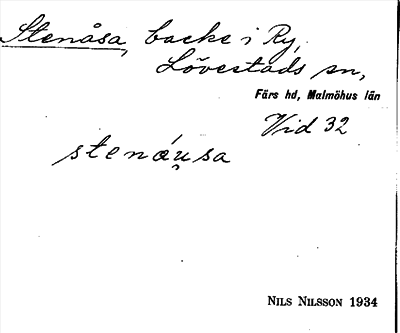 Stenåsa, backe i Ry,
Lövestads sn,
Färs hd, Malmöhus län
Vid 32
stenáu̯sa
NILS NILSSON 1934